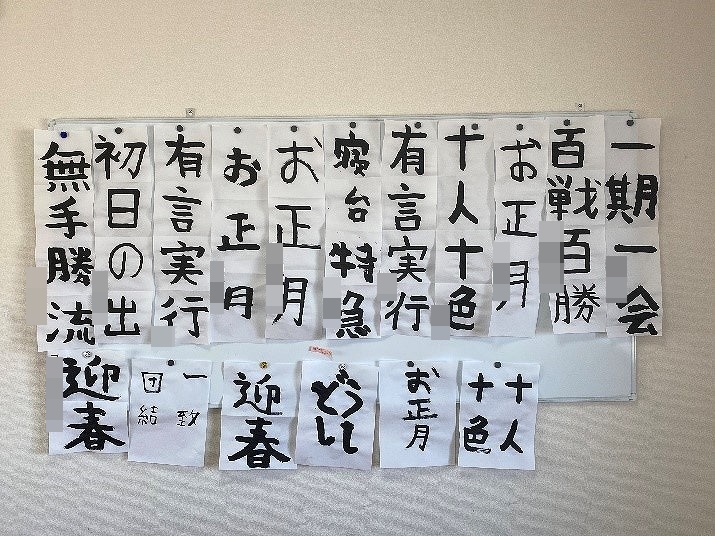 一期一会
百戦百勝
お正月
十人十色
有言実行
寝台特急
お正月
お正月
有言実行
初日の出
無手勝流
十人
十色
お正月
どう
して
迎春
一致
団結
迎春